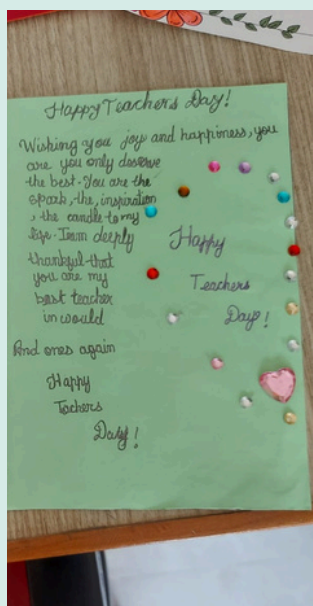 Happy Teachers Day!
Wishing you joy and happiness, you
are you only deserve
the best. You are the
spark, the, inspiration
, the candle to my
life. Iam deeply
thankful that
you are my
best teacher
in would
And ones again
Happy
Tachers
Day!
Happy
Teachers
Day!